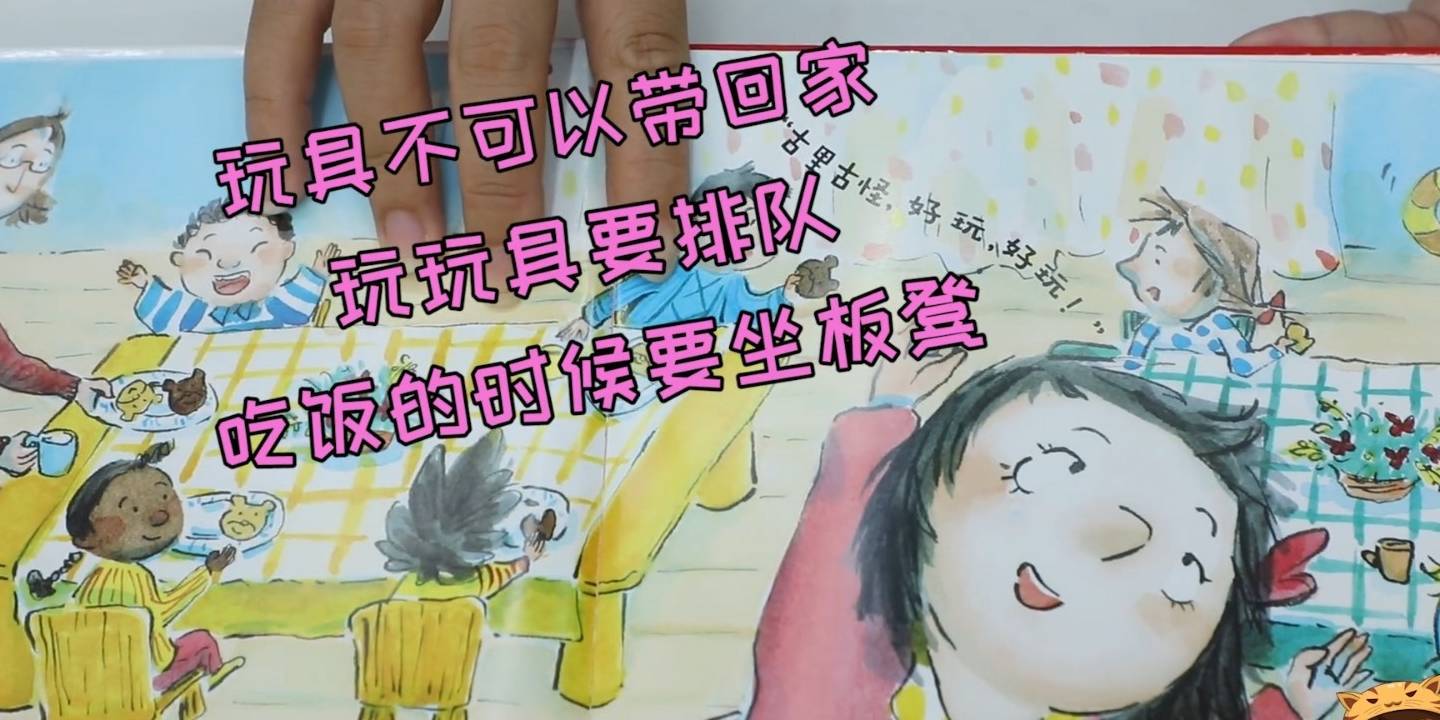 玩具不可以带回家
玩玩具要排队
吃饭的时候要坐板凳
“古里古怪，好玩，好玩！”